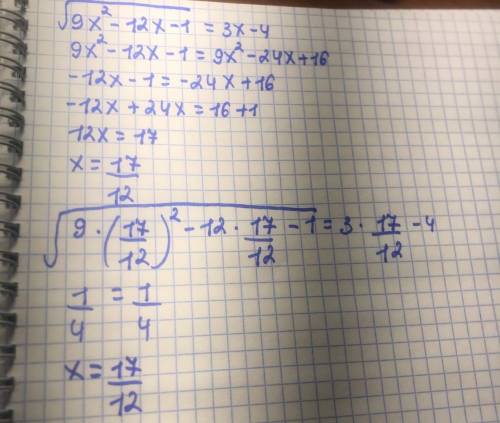 √(9x² - 12x - 1) = 3x - 4
9x² - 12x - 1 = 9x² - 24x + 16
-12x - 1 = -24x + 16
-12x + 24x = 16 + 1
12x = 17
x = 17/12
√(9 · (17/12)² - 12 · 17/12 - 1) = 3 · 17/12 - 4
1/4 = 1/4
x = 17/12